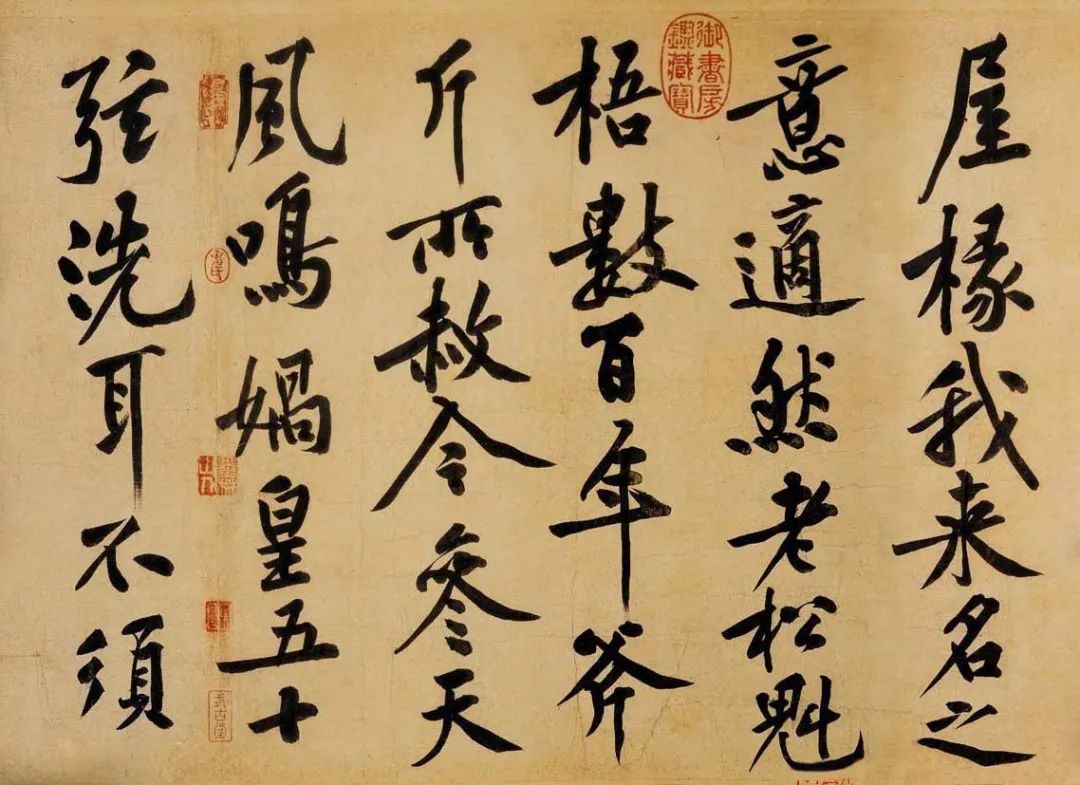 屋椽我来名之
意適然老松魁
梧數百年斧
斤所赦今參天
風鳴媧皇五十
弦洗耳不須
御書房鑑藏寶